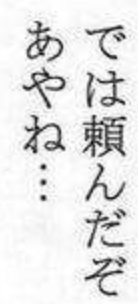 では頼んだぞ
あやね…